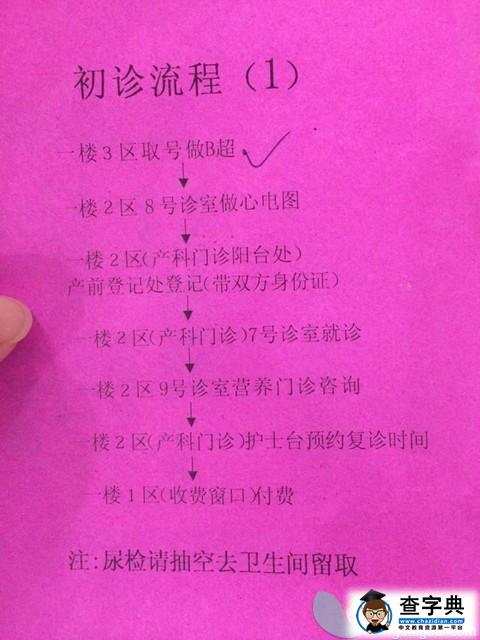 初诊流程（1）
一楼3区取号做B超
一楼2区8号诊室做心电图
一楼2区(产科门诊阳台处)
产前登记处登记(带双方身份证)
一楼2区(产科门诊)7号诊室就诊
一楼2区9号诊室营养门诊咨询
一楼2区(产科门诊)护士台预约复诊时间
一楼1区(收费窗口)付费
注:尿检请抽空去卫生间留取
查字典
www.chazidian.com
中文教育资源第一平台